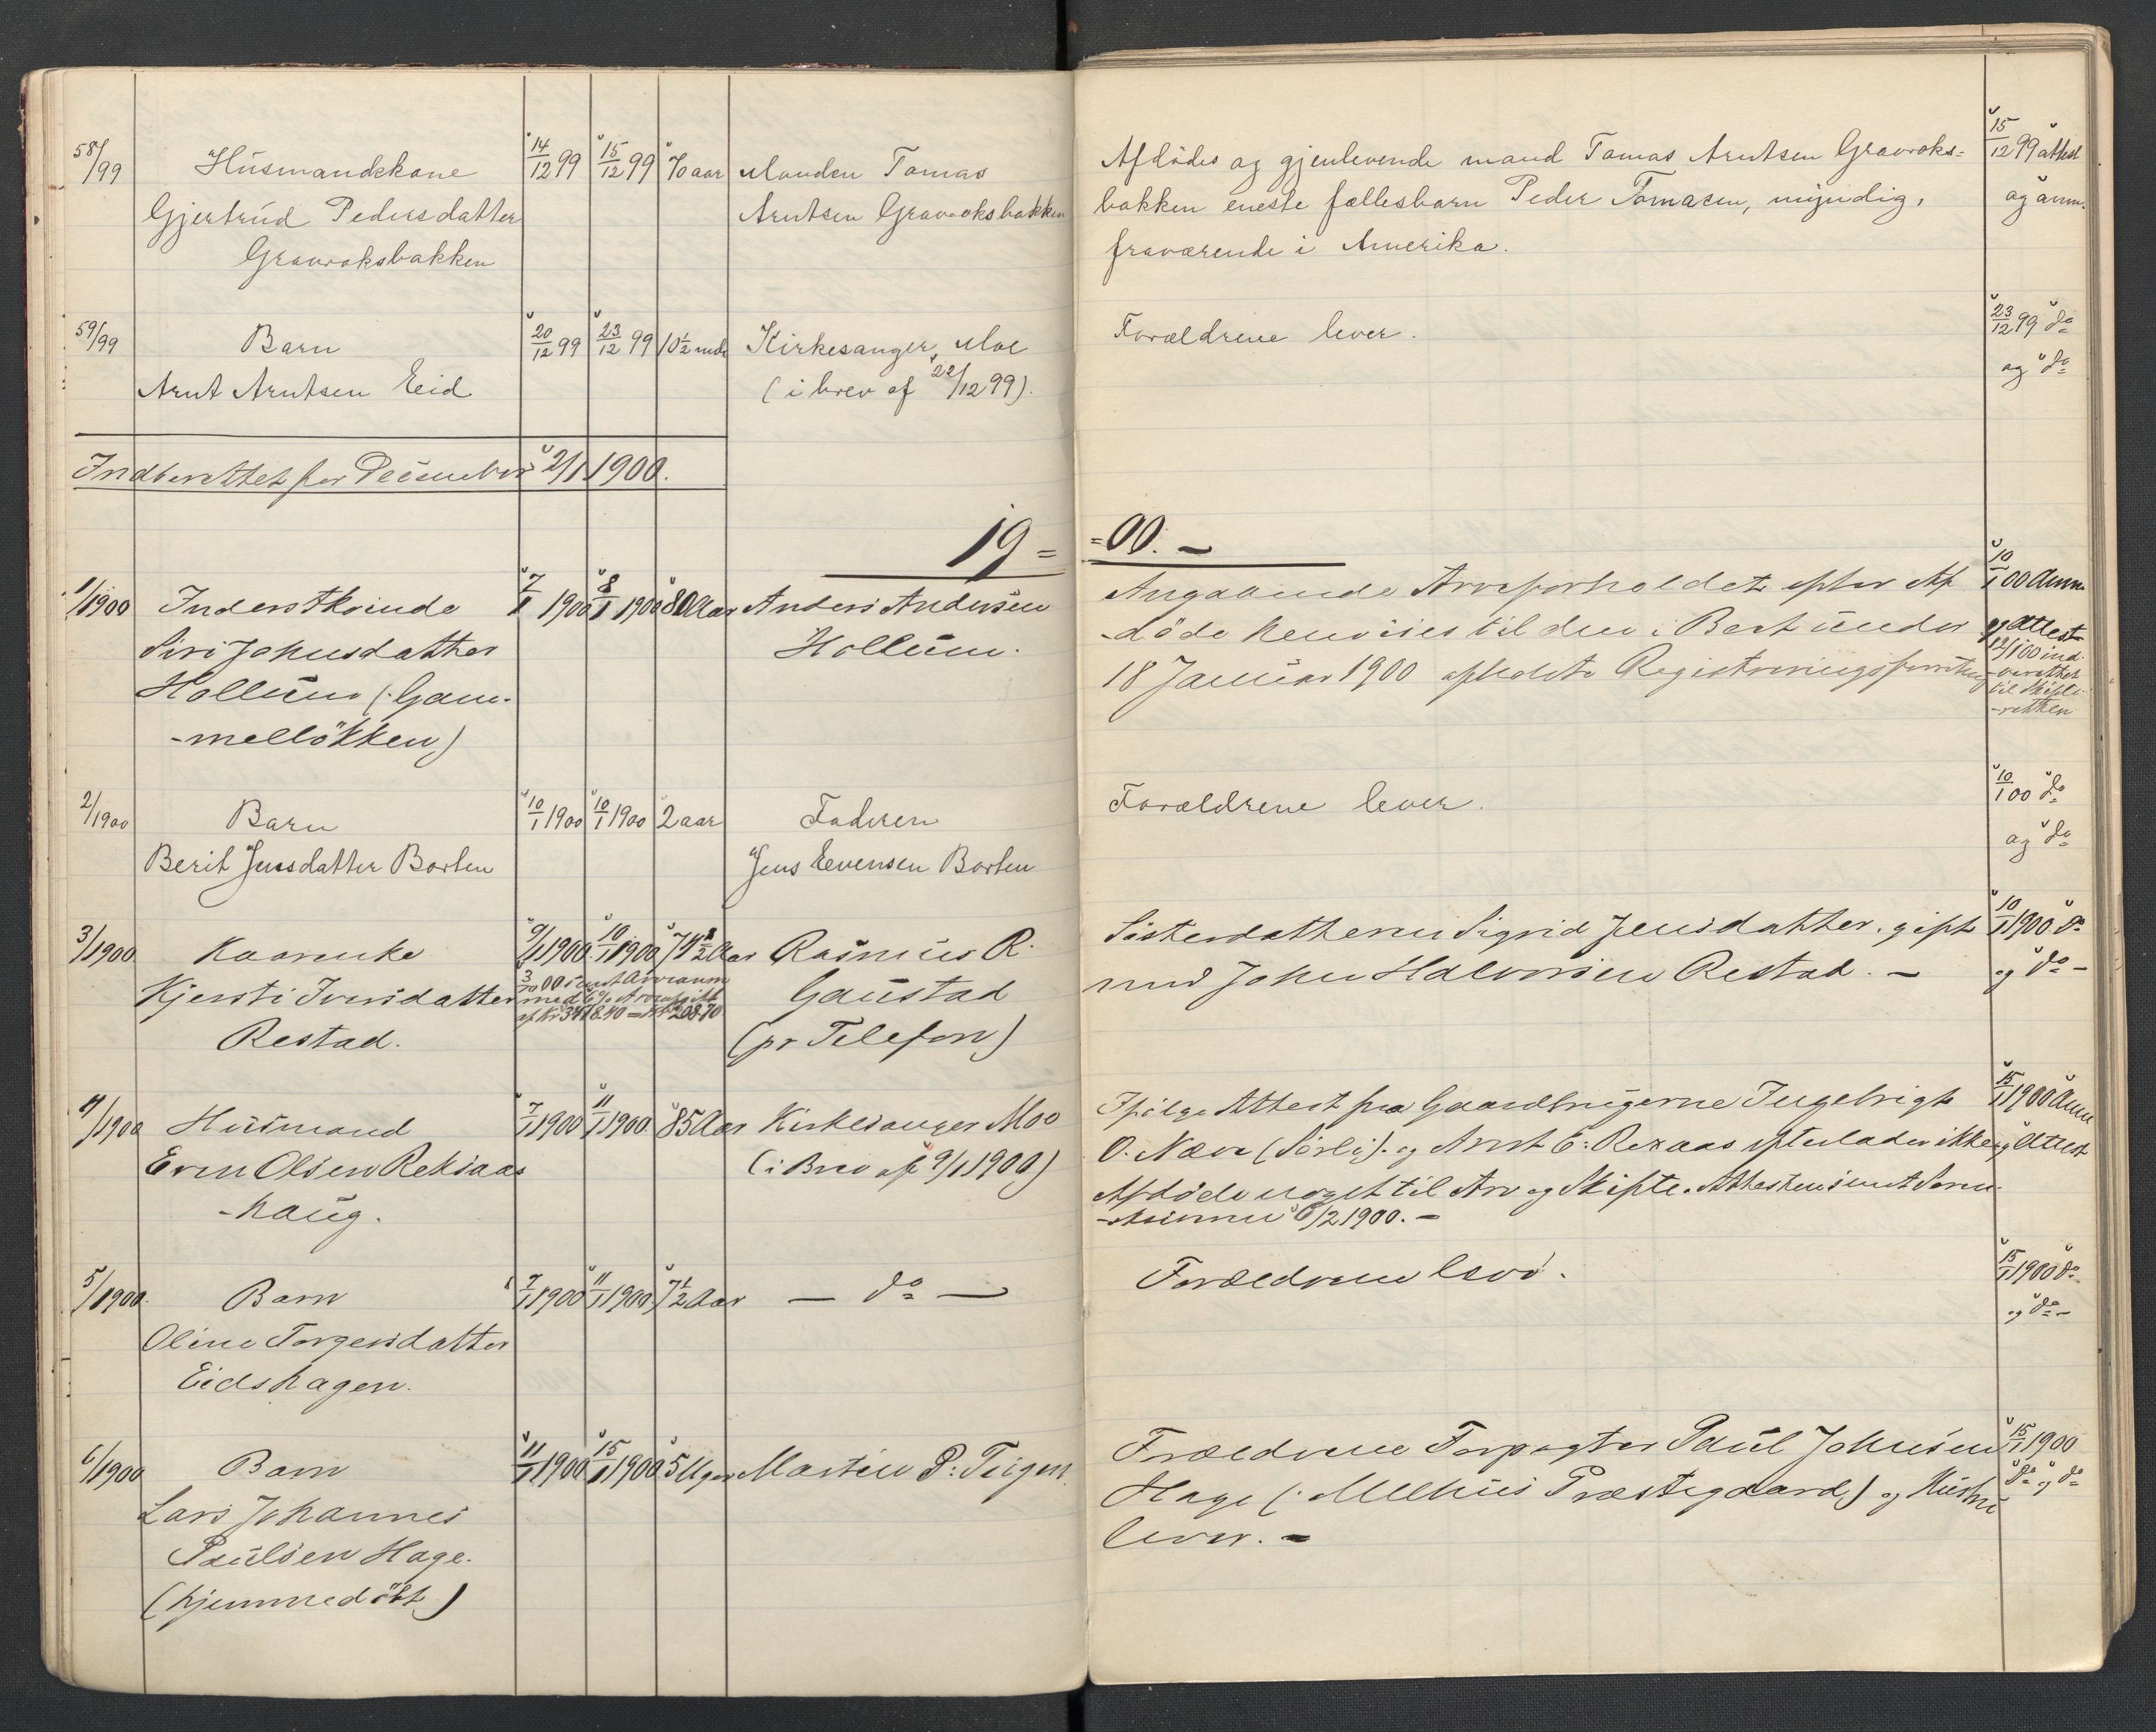 58/99 Husmandskone 14/12 99 15/12 99 70 aar Manden Tomas
Gjertrud Pedersdatter Arntsen Gravraksbakken
Gravraksbakken
Afdødes og gjenlevende mand Tomas Arntsen Gravraks= 15/12 99 attest
bakken eneste fællesbarn Peder Tomasen, myndig, og anm.
fraværende i Amerika.
59/99 Barn 20/12 99 23/12 99 10½ mdr Kirkesanger Moe
Arnt Arntsen Eid (i brev af 22/12 99).
Forældrene lever. 23/12 99 do
og do
Indberettet for December 2/1 1900.
19= =00. –
1/1900 Inderstkvinde 7/1 1900 8/1 1900 80 Aar Anders Andersen
Siri Johnsdatter Hollum.
Hollum (: Gam-
-melløkken)
Angaaende Arveforholdet efter Af 10/1 00 Anm
-døde henvises til den i Bert under og Attest
18 Januar 1900 afholdte Registreringsforretng 12/1 00 ind-
-berettet
til Skifte-
-retten
2/1900 Barn 10/1 1900 10/1 1900 2 aar Faderen
Berit Jensdatter Borten Jens Evensen Borten
Forældrene lever. 10/1 00 do
og do
3/1900 Kaarenke 9/1 1900 10/1 1900 74½ Aar Rasmus R.
Kjersti Iversdatter Gaustad
Restad. (pr Telefon)
3/10 00 sendt Arveanm
med 6% Arveafgift
af Kr 3478.40 = Kr 208.70
Søsterdatteren Sigrid Jensdatter. gift 10/1 1900 do
med John Halvorsen Restad. – og do –
4/1900 Husmand 7/1 1900 11/1 1900. 85 Aar Kirkesanger Moe
Even Olsen Reksaas (i Brev af 9/1 1900)
-haug.
Ifølge Attest fra Gaardbrugerne Ingebrigt 15/1 1900 Anm
O. Næve (Sørli). og Arnt E. Rexaas efterlader ikke og Attest
Afdøde noget til Arv og Skifte. Attesten sendt Soren-
-skriveren 6/2 1900. –
5/1900. Barn 7/1 1900 11/1 1900 7½ Aar – do –
Oline Torgersdatter
Eidshagen.
Forældrene lever. 15/1 1900 do.
og do –
6/1900 Barn 11/1 1900 15/1 1900 5 Uger Martin P. Teigen
Lars Johannes
Paulsen Hage.
(hjemmedøbt)
Forældrene Forpagter Paul Johnsen 15/1 1900
Hage (: Melhus Præstegaard) og Hustru do og do
lever. –